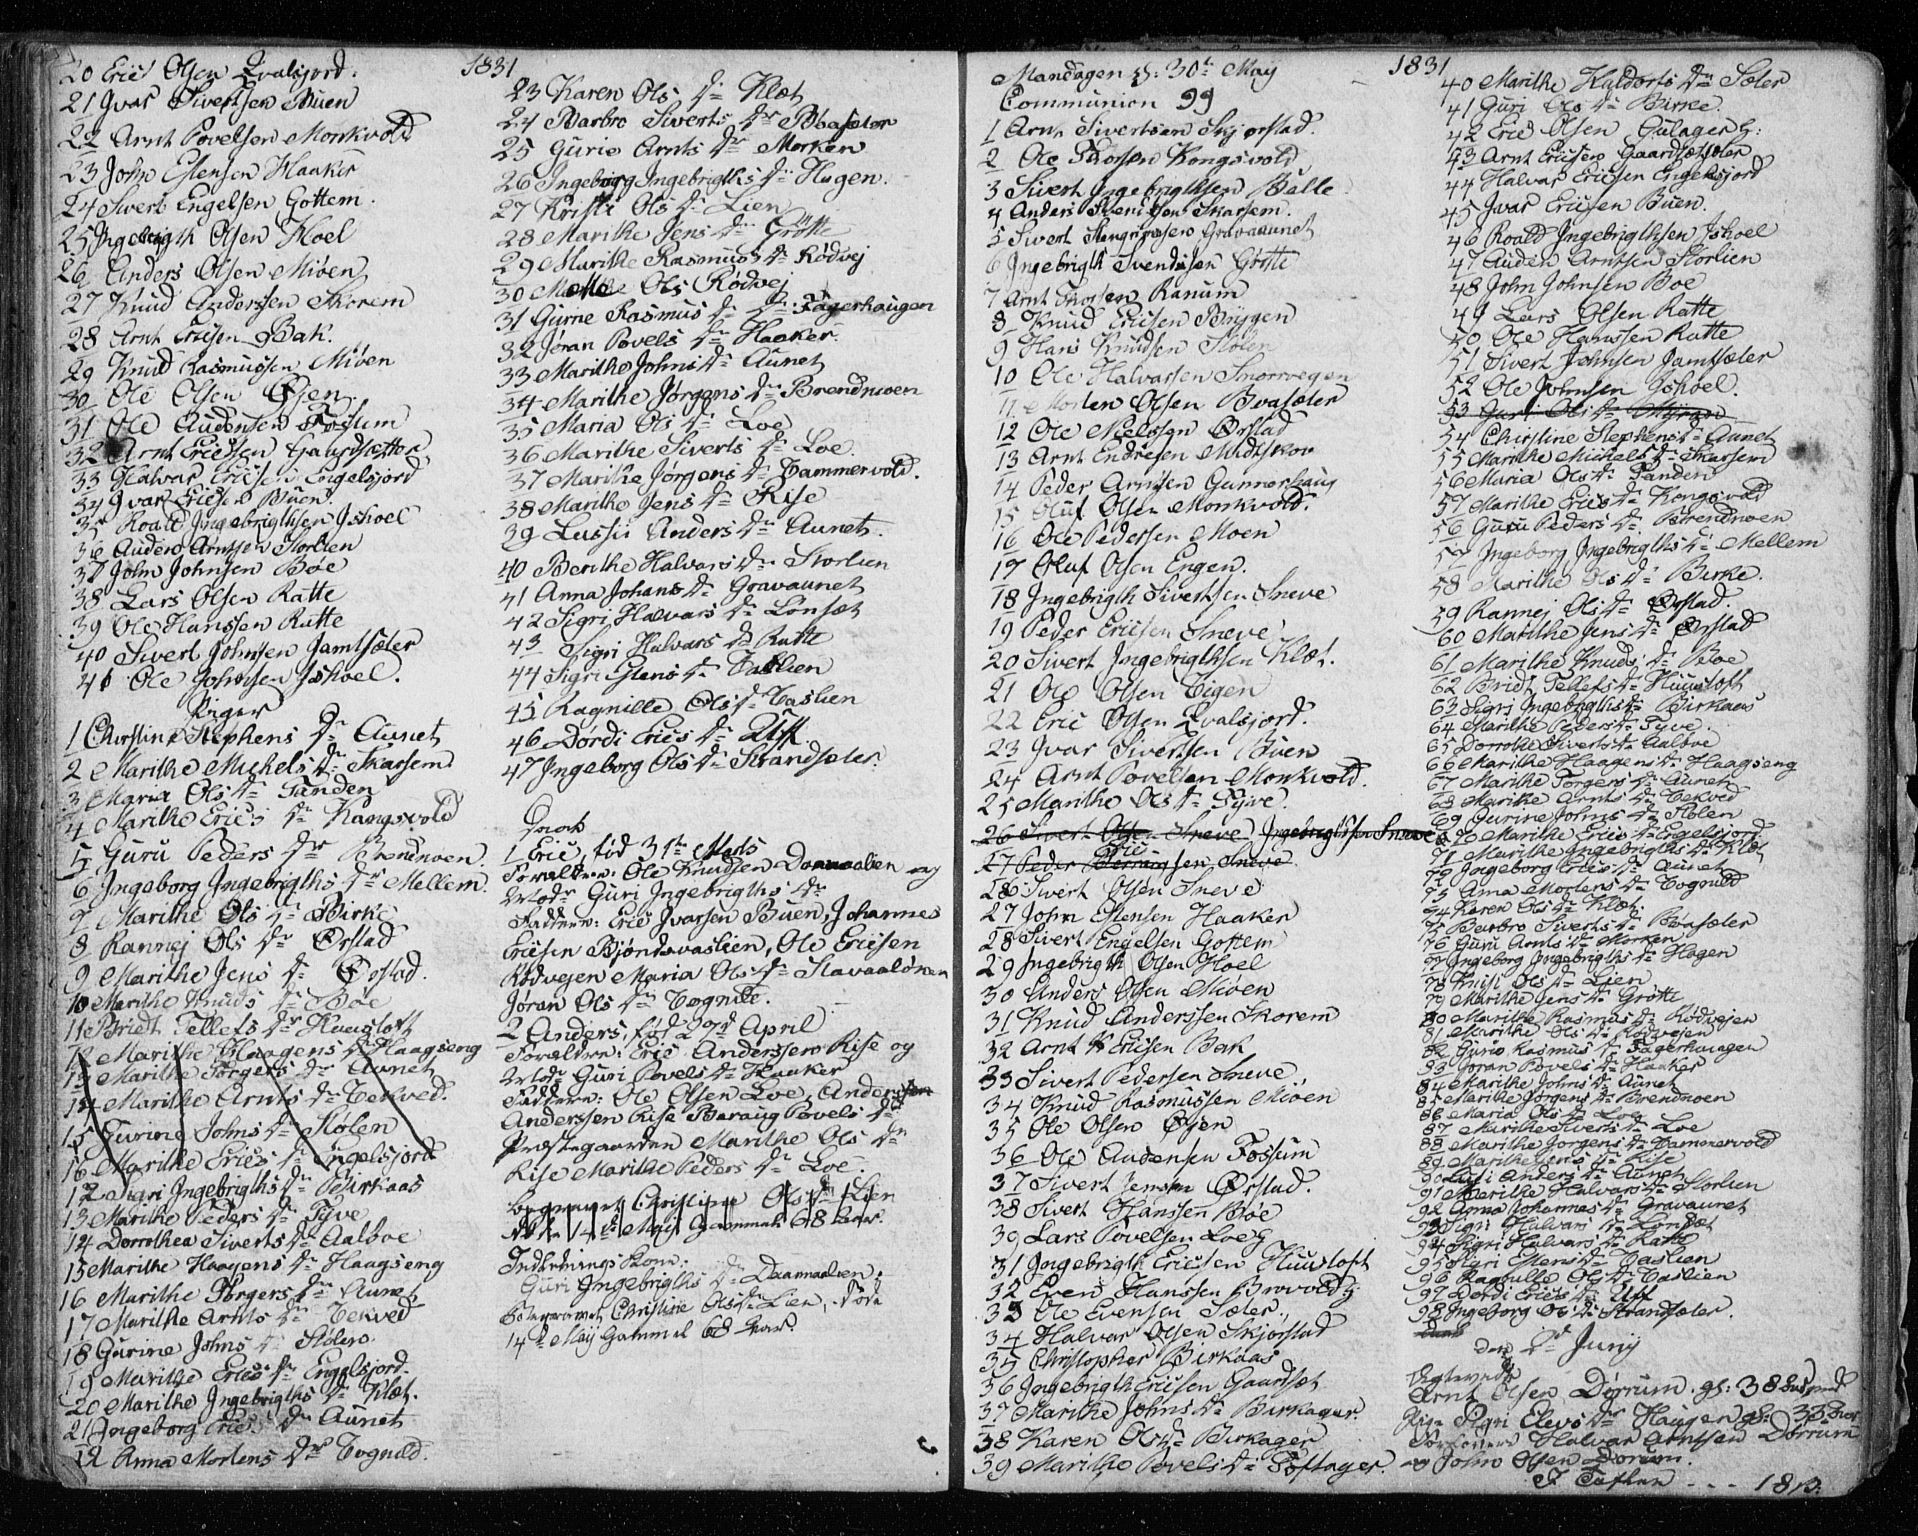 1831
20 Eric Olsen Qvalsjord.
21 Jvar Sivertsen Buen
22 Arnt Povelsen Monkvold
23 John Estensen Haaker
24 Sivert Engelsen Gottem.
25 Ingebrigth Olsen Hoel
26 Anders Olsen Miöen
27 Knud Anderssen Skorem
28 Arnt Ericsen Bak.
29 Knud Rasmussen Miöen
30 Ole Olsen Øjen.
31 Ole Audensen Fossum
32 Arnt Ericsen Gaardsætter
33 Halvar Ericsen Engelsjord
34 Jvar Ericsen Buen.
35 Roald Jngebrigthsen Jshoel
36 Auden Arntsen Storlien
37 John Johnsen Boe
38 Lars Olsen Ratte
39 Ole Hanssen Ratte
40 Sivert Johnsen Jamtsæter
41 Ole Johnsen Jshoel.
Piger
1 Christine Stephens Dr Aunet
2 Marithe Michels Dr Skarsem
3 Maria Ols Dr Sanden
4 Marithe Erics Dr Kongsvold
5 Guru Peders Dr Brendnoen.
6 Jngeborg Jngebrigths Dr Mellem.
7 Marithe Ols Dr Birke
8 Rannej Ols Dr Ørstad
9 Marithe Jens Dr Ørstad.
10 Marithe Knuds Dr Boe
11 Bridt Tellefs Dr Huusloft
12 Marithe Haagens Dr Haagseng
13 Marithe Torgers Dr Aunet
14 Marithe Arnts Dr Tekved.
15 Gurine Johns Dr Stölen
16 Marithe Erics Dr Engelsjord
12 Sigri Jngebrigths Dr Birkaas
13 Marithe Peders Dr Tyve
14 Dorrothea Siverts Dr Aalboe
15 Marithe Haagens Dr Haagseng
16 Marithe Torgers Dr Aunet
17 Marithe Arnts Dr Tekved
18 Gurine Johns Dr Stölen
19 Marithe Erics Dr Engelsjord.
20 Marithe Jngebrigths Dr Klæt.
21 Jngeborg Erics Dr Aunet
22 Anna Mortens Dr Vognild.
23 Karen Ols Dr Klæt
24 Barbro Siverts Dr Bbasæter
25 Gurie Arnts Dr Morken
26 Jngeborg Jngebrigths Dr Hagen.
27 Kristi Ols Dr Lien
28 Marithe Jens Dr Grötte
29 Marithe Rasmus Dr Rödvej
30 Ols Rödvej
31 Gurne Rasmus Dr Fagerhaugen
32 Jöran Povels Dr Haaker.
33 Marithe Johns Dr Aunet
34 Marithe Jørgens Dr Brendnoen
35 Maria Ols Dr Loe
36 Marithe Siverts Dr Loe
37 Marithe Jørgens Dr Vammervold.
38 Marithe Jens Dr Rise
39 Lussi Anders Dr Aunet.
40 Berithe Halvars Dr Storlien
41 Anna Johans Dr Gravaunet
42 Sigri Halvars Dr Lönset
43 Sigri Halvars Dr Ratte
44 Sigri Estens Dr Vaslien
45 Ragnille Ols Dr Vaslien
46 Dordi Erics Dr Uff.
47 Jngeborg Ols Dr Strandsæter.
1 Eric, fød 31te Marts
Forældre: Ole Knudsen Donnaalien og
Modr Guri Jngebrigths Dr
Faddere: Eric Jvarsen Buen, Johannes
Ericsen Bjöndsvaslien, Ole Ericsen
Rödvejen Maria Ols Dr Slavaalönen
Jöran Ols Dr Vognild.
2 Anders, fød 22d April
Forældre: Eric Anderssen Rise og
Modr Guri Povels Dr Haaker
Faddere: Ole Olsen Loe, Anders
Anderssen Rise Baraug Povels Dr
Præstegaarden Marithe Ols Dr
Rise Marithe Peders Dr Loe.
Begravet Christine Ols Dr Lien
14de Maij Gammel 68 Aar.
Indlednings Kone:
Guri Jngebrigths Dr Daamaalien.
Begravet Christine Ols Dr Lien, döde
14de Maij Gammel 68 Aar.
1831
Mandagen d: 30te May
Communion 99
1 Arnt Sivertsen Skjørstad.
2 Ole Thorsen Kongsvold
3 Sivert Jngebrigthsen Balle.
4 Anders Svensen Skarsem.
5 Sivert Stengrimsen Gravaunet
6 Jngebrigth Svendsen Grötte
7 Arnt Thorsen Ranum
8 Knud Ericsen Bryggen
9 Hans Knudsen Stölen
10 Ole Halvarsen Snorvegen
11 Morten Olsen Bvasæter
12 Ole Nielssen Ørstad
13 Arnt Endresen Midtskov
14 Peder Arntsen Gunnershaug
15 Oluf Olsen Monkvold.
16 Ole Pedersen Moen
17 Oluf Olsen Engen.
18 Jngebrigth Sivertsen Sneve
19 Peder Ericsen Sneve
20 Sivert Jngebrigthsen Klæt.
21 Ole Olsen Vigen
22 Eric Olsen Qvalsjord.
23 Jvar Sivertsen Buen
24 Arnt Povelsen Monkvold.
25 Marithe Ols Dr Tyve.
26 Sivert Olsen Sneve Jngebrigthsen Sneve
27 Peder sen Sneve
26 Sivert Olsen Sneve
27 John Estensen Haaker
28 Sivert Engelsen Gottem
29 Jngebrigth Olsen Hoel
30 Anders Olsen Miöen
31 Knud Anderssen Skorem
32 Arnt Ericsen Bak
33 Sivert Pedersen Sneve
34 Knud Rasmussen Miöen
35 Ole Olsen Øjen
36 Ole Audensen Fossum
37 Sivert Jensen Ørstad.
38 Sivert Hanssen Boe
39 Lars Povelsen Loe
31 Jngebrigth Ericsen Huusloft
32 Even Hanssen Brovold
33 Ole Evensen Sæter.
34 Halvar Olsen Skjørstad
35 Christopher Birkaas
36 Jngebrigth Ericsen Gaardsæt
37 Marithe Johns Dr Birkager.
38 Karen Ols Dr Birkager
39 Marithe Povels Dr Toftager.
40 Marithe Haldors Dr Sæter
41 Guri Ols Dr Birke.
42 Eric Olsen Gulager
43 Arnt Ericsen Gaardsætsæter
44 Halvar Ericsen Engelsjord
45 Jvar Ericsen Buen.
46 Roald Jngebrigthsen Jshoel
47 Auden Arntsen Storlien
48 John Johnsen Boe
49 Lars Olsen Ratte
50 Ole Hanssen Ratte
51 Sivert Johnsen Jamtsæter
52 Ole Johnsen Jshoel.
53 Guri Ols Dr
54 Christine Stephens Dr Aunet
55 Marithe Michels Dr Skarsem
56 Maria Ols Dr Sanden
57 Marithe Erics Dr Kongsvold
56 Guru Peders Dr Brendnoen
57 Jngeborg Jngebrigths Dr Mellem
58 Marithe Ols Dr Birke.
59 Rannej Ols Dr Ørstad.
60 Marithe Jens Dr Ørstad
61 Marithe Knuds Dr Boe
62 Bridt Tellefs Dr Huusloft
63 Sigri Jngebrigths Dr Birkaas
64 Marithe Peders Dr Tyve
65 Dorrothe Siverts Dr Aalboe
66 Marithe Haagens Dr Haagseng
67 Marithe Torgers Dr Aunet
68 Marithe Arnts Dr Tekved
69 Gurine Johns Dr Stölen
70 Marithe Erics Dr Engelsjord
71 Marithe Jngebrigths Dr Klæt
72 Jngeborg Erics Dr Aunet
73 Anna Mortens Dr Vognild
74 Karen Ols Dr Klæt.
75 Barbro Siverts Dr Bvasæter
76 Guri Arnts Dr Morken
77 Jngeborg Jngebrigths Dr Hagen
78 Kristi Ols Dr Lien
79 Marithe Jens Dr Grötte
80 Marithe Rasmus Dr Rödvejen
81 Marithe Ols Dr Rödvejen
82 Gurie Rasmus Dr Fagerhaugen
83 Jöran Povels Dr Haaker
84 Marithe Johns Dr Aunet
85 Marithe Jørgens Dr Brendnoen
86 Maria Ols Dr Loe
87 Marithe Siverts Dr Loe
88 Marithe Jorgens Dr Vammervold
89 Marithe Jens Dr Rise
90 Lussi Anders Dr Aunet
91 Berithe Halvars Dr Storlien
92 Anna Johannes Dr Gravaunet
93 Sigri Halvars Dr Lönset
94 Sigri Halvars Dr Ratte
95 Sigri Estens Dr Vaslien
96 Ragnille Ols Dr Vaslien
97 Dordi Erics Dr Uff
98 Jngeborg Ols Dr Strandsæter.
den 2d Junij
Ægtevied
Arnt Olsen Dørrum. gl: 38
Pige Sigri Elevs Dr Haugen gl: 33 Aar
Forlovere Halvar Arntsen Dörrum
og John Olsen Dorum.